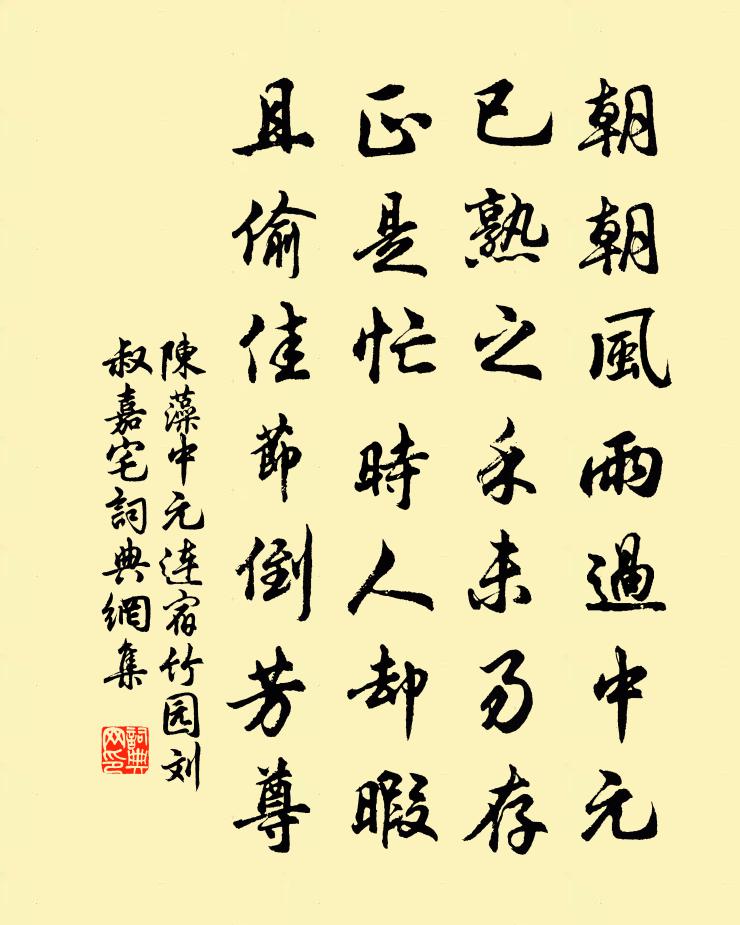 朝朝風雨過中元
已熟之禾未易存
正是忙時人却暇
且偷佳節倒芳尊
陳藻中元連宿竹园刘
叔嘉宅詞典網集
詞典
网印